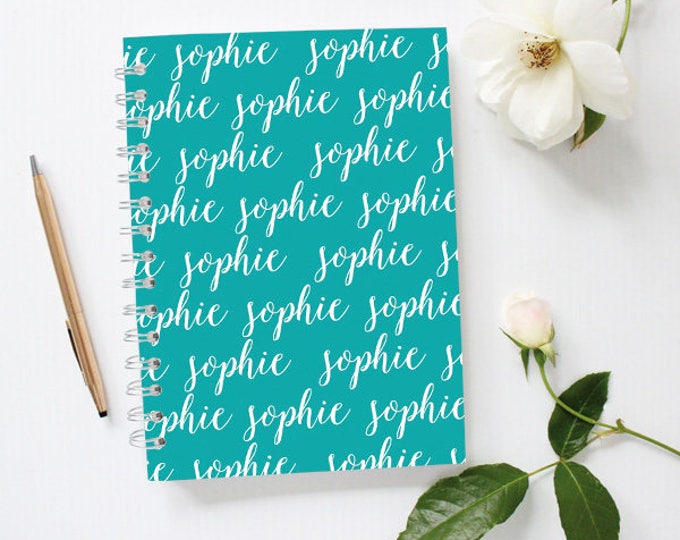 ie sophie sophie s
ophie sophie sophie
ie sophie sophie s
ophie sophie sophie
ie sophie sophie s
ophie sophie sophie
ie sophie sophie s
ophie sophie sophie
ie sophie sophie s